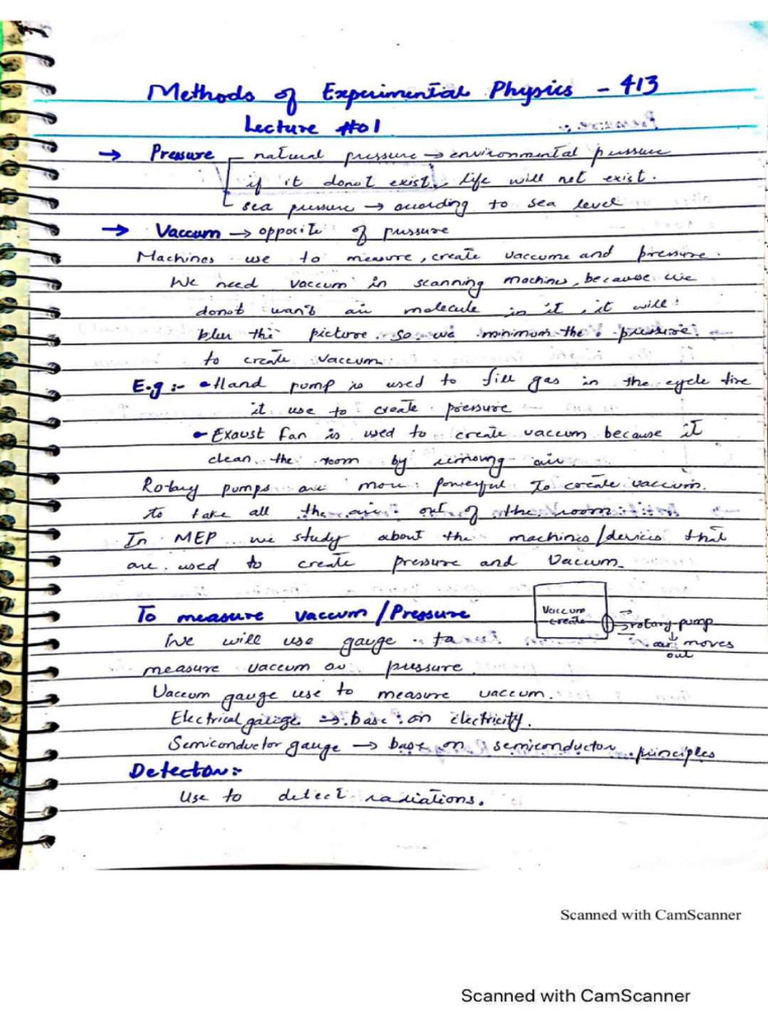 Methods of Experimental Physics - 413
Lecture #01
→ Pressure - natural pressure → environmental pressure
if it donot exist, life will not exist.
sea pressure → according to sea level
→ Vaccum → opposite of pressure
Machines use to measure, create vaccume and pressure.
We need vaccum in scanning machines, because we
donot want air molecule in it, it will
blur the picture. so we minimum the pressure
to create vaccum
E.g:- • Hand pump is used to fill gas in the cycle tire
it use to create pressure
• Exaust fan is used to create vaccum because it
clean the room by removing air
Rotary pumps are more powerful to create vaccum.
to take all the air out of the room
In MEP we study about the machines/devices that
are used to create pressure and Vaccum
To measure vaccum / Pressure
Vaccum
create
→ rotary pump
↓
air moves
out
We will use gauge to
measure vaccum or pressure.
Vaccum gauge use to measure vaccum.
Electrical gauge → base on electricity.
Semiconductor gauge → base on semiconductor principles
Detector:-
Use to detect radiations.
Scanned with CamScanner
Scanned with CamScanner